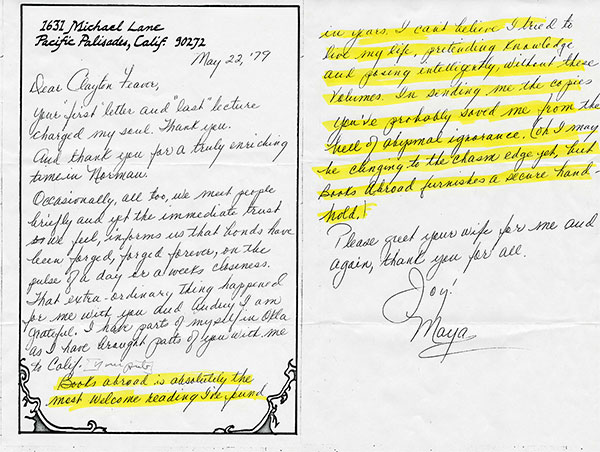 1631 Michael Lane
Pacific Palisades, Calif. 90272
May 22, '79
Dear Clayton Feaver,
Your "first" letter and "last" lecture
charged my soul. Thank you.
And thank you for a truly enriching
time in Norman.
Occasionally, all too, we meet people
briefly and yet the immediate trust
we feel, informs us that bonds have
been forged, forged forever, on the
pulse of a day or a weeks closeness.
That extra-ordinary thing happened
for me with you and Audrey I am
grateful. I have part of myself in Okla
as I have brought parts of you with me
to Calif.
Books abroad is absolutely the
most welcome reading I've found
in years. I can't believe I tried to
live my life, pretending knowledge
and posing intelligently, without these
Volumes. In sending me the copies
you've probably saved me from the
hell of abysmal ignorance. (oh I may
be clinging to the chasm edge yet, but
Books abroad furnishes a secure hand-
hold.)
Please greet your wife for me and
again, thank you for all.
Joy!
Maya